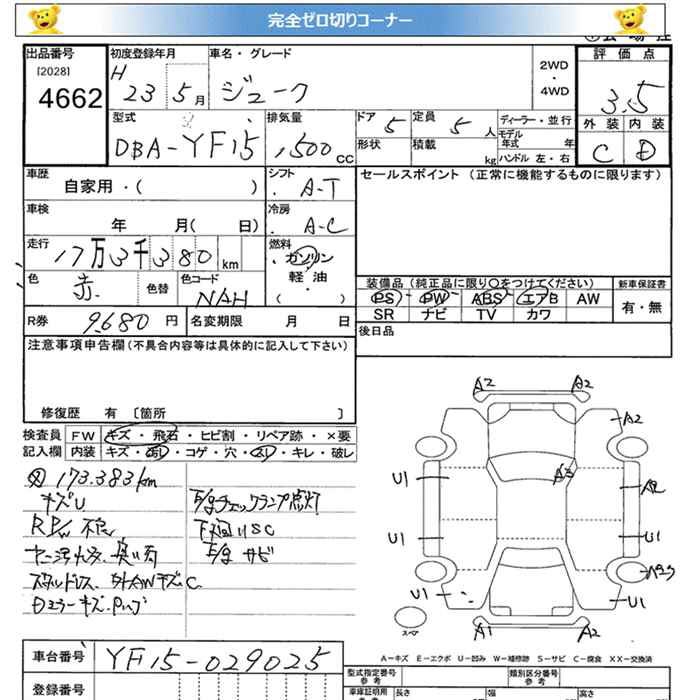 完全ゼロ切りコーナー
出品番号
[2028]
4662
初度登録年月
H 23 5月
車名・グレード
ジューク
2WD
・
4WD
評価点
3.5
外装 内装
C D
型式
DBA-YF15
排気量
1,500 CC
ドア 5
形状
定員 5 人
積載 kg
ディーラー・並行
モデル年式 年
ハンドル 左・右
車歴
自家用・( )
シフト
A-T
セールスポイント (正常に機能するものに限ります)
車検
年 月( 日)
冷房
A-C
走行
17万3千380 km
燃料
ガソリン
軽油
( )
色
赤
色替
色コード
NAH
装備品 (純正品に限り○をつけてください)
新車保証書
PS PW ABS エアB AW
有・無
SR ナビ TV カワ
R券 9,680 円
名変期限 月 日
後日品
注意事項申告欄 (不具合内容等は具体的に記入して下さい)
修復歴 有 〔箇所 〕
検査員
記入欄
FW キズ・飛石・ヒビ割・リペア跡・×要
内装 キズ・汚レ・コゲ・穴・スレ・キレ・破レ
173.383km
キズU
R P/W 不良
E/gチェックランプ点灯
下廻りSC
E/g サビ
A2 A2
A2
A3
U1
A2
U1
U1
U1
U1
A1 A2
スペア
A-キズ E-エクボ U-凹み W-補修跡 S-サビ C-腐食 XX-交換済
車台番号
YF15-029025
登録番号
型式指定番号
参考
類別区分番号
参考
車庫証明用
長さ
幅
高さ